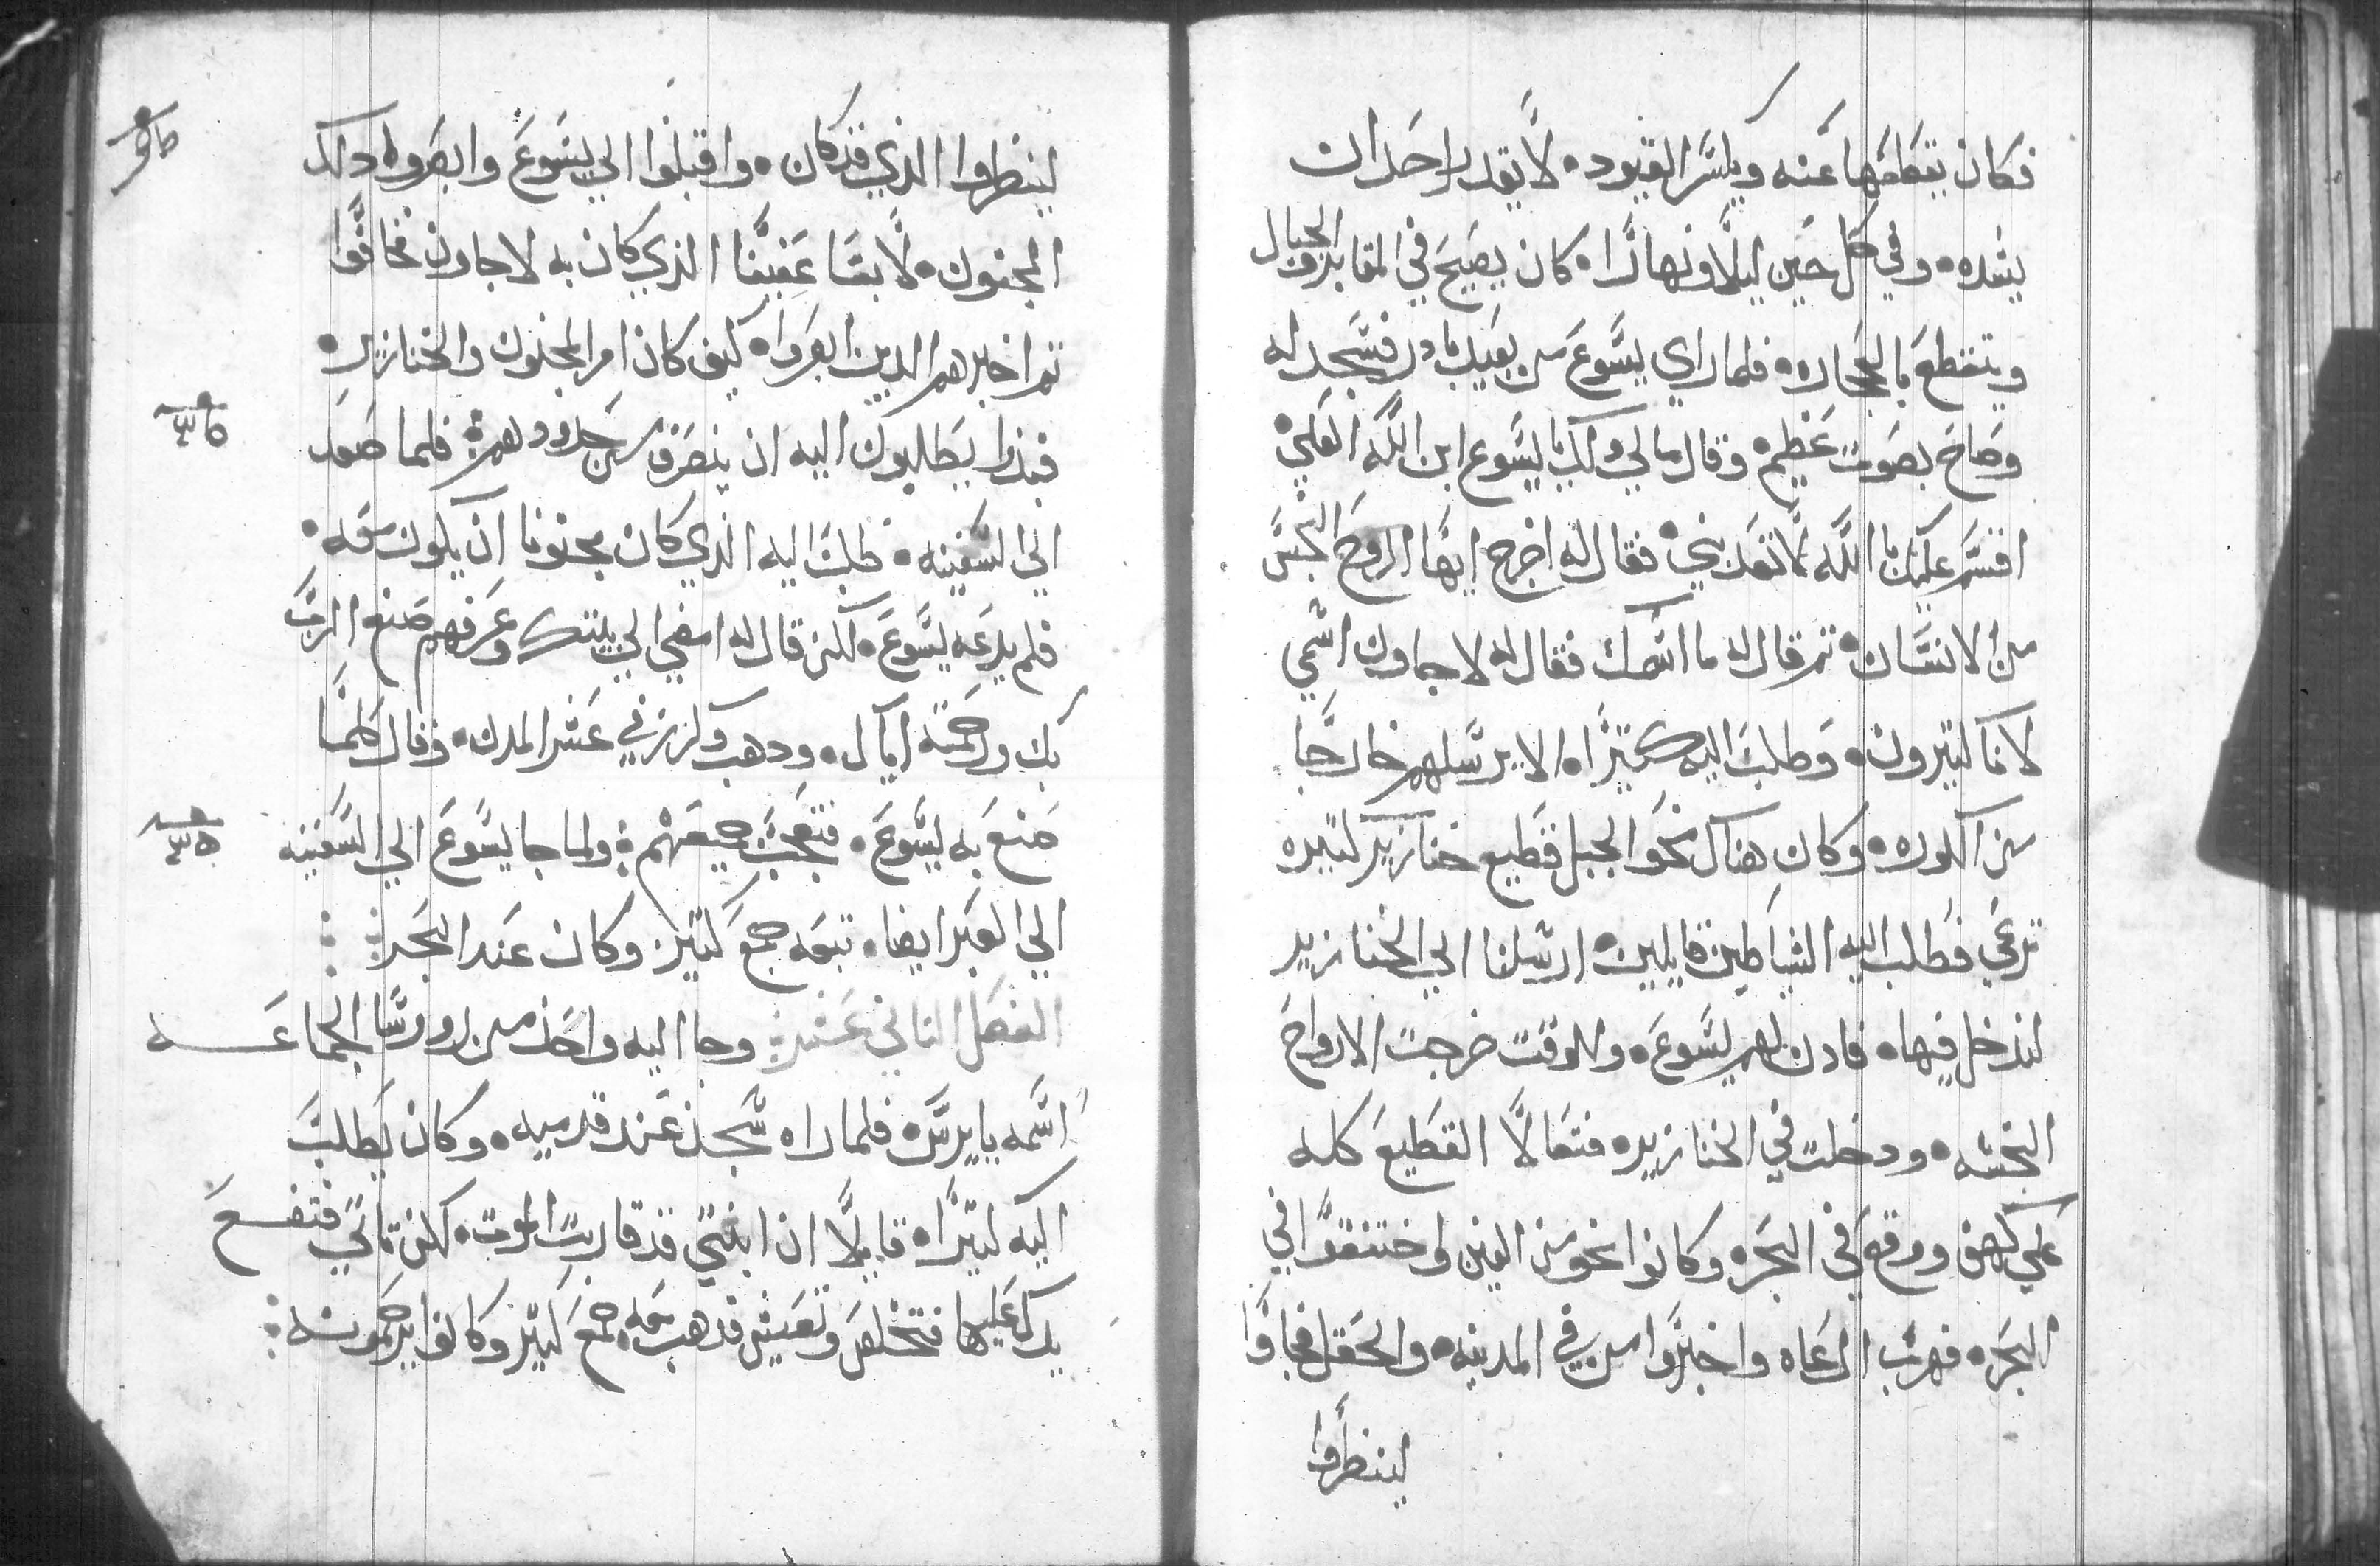 فكان يقطعها عنه ويكسر القيود ولا يقدر احدان
يشده وفي كل حين ليلا ونهارا كان يصيح في المقابر والجبال
ويتقطع بالحجاره فلما راي يسوع من بعيد بادر فسجد له
وصاح بصوت عظيم وقال مالي ولك يا يسوع ابن الله العلي
اقسم عليك بالله لا تعدبني فقال له اخرج ايها الروح النجس
من الانسان ثم قال له ما اسمك فقال له لاجاون اسمي
لاننا كثيرون وطلب اليه كثيرا الا يرسلهم خارجا
من الكوره وكان هناك نحو الجبل قطيع خنازير كثيره
ترعي فطلب اليه الشياطين قايلين ارسلنا الي الخنازير
لندخل فيها فادن لهم يسوع وللوقت خرجت الارواح
النجسه ودخلت في الخنازير فتعالا القطيع كله
علي كهف ووقع في البحر وكانوا نحو من الفين واختنقوا في
البحر فهرب الرعاه واخبروا من في المدينه والحقل فجاوا
لينظروا
لينظروا الذي قد كان واقبلوا الي يسوع وابصروا داك
المجنون لابسا عفيفا الذي كان به لاجاون فخافوا
ثم اخبرهم الدين ابصروا كيف كان امر المجنون والخنازير
فبدوا يطلبون اليه ان ينصرف من حدودهم فلما صعد
الي السفينه طلب اليه الذي كان مجنونا ان يكون معه
فلم يدعه يسوع لكن قال له امضي الي بيتك وعرفهم صنع الرب
بك ورحمته اياك ودهب وكرز في عشر المدن وقال كلما
صنع به يسوع فتعجب جميعهم ولما جا يسوع الي السفينه
الي العبر ايضا تبعه جمع كثير وكان عند البحر
الفصل الثاني عشر وجا اليه واحد من روسا الجماعه
اسمه يايرس فلما راه سجد عند قدميه وكان يطلب
اليه كثيرا قايلا ان ابنتي قد قاربت الموت لكن تاتي فتضع
يدك عليها فتخلص وتعيش فدهب معه جمع كثير وكانوا يزحمونه